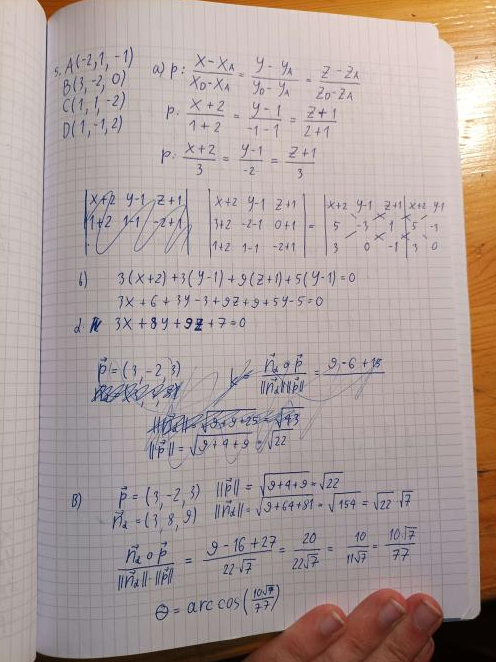 5. A(-2,1,-1)
B(3,-2,0)
C(1,1,-2)
D(1,-1,2)
a) p: (x-x_A)/(x_D-x_A) = (y-y_A)/(y_D-y_A) = (z-z_A)/(z_D-z_A)
p: (x+2)/(1+2) = (y-1)/(-1-1) = (z+1)/(2+1)
p: (x+2)/3 = (y-1)/-2 = (z+1)/3
|x+2 y-1 z+1| |x+2 y-1 z+1| |x+2 y-1 z+1| x+2 y-1
|1+2 1-1 -2+1| |3+2 -2-1 0+1| = |5 -3 1| 5 -3
|1+2 1-1 -2+1| |3 0 -1| 3 0
б) 3(x+2)+3(y-1)+9(z+1)+5(y-1)=0
3x+6+3y-3+9z+9+5y-5=0
α: 3x+8y+9z+7=0
p⃗=(3,-2,3) (n⃗α∘p⃗)/(||n⃗α||||p⃗||) = 9-6+15
||n⃗α||=√(9+9+25)=√43
||p⃗||=√(9+4+9)=√22
в) p⃗=(3,-2,3) ||p⃗||=√(9+4+9)=√22
n⃗α=(3,8,9) ||n⃗α||=√(9+64+81)=√154=√22 √7
(n⃗α∘p⃗)/(||n⃗α||·||p⃗||) = (9-16+27)/(22·√7) = 20/(22√7) = 10/(11√7) = 10√7/77
Θ=arccos(10√7/77)